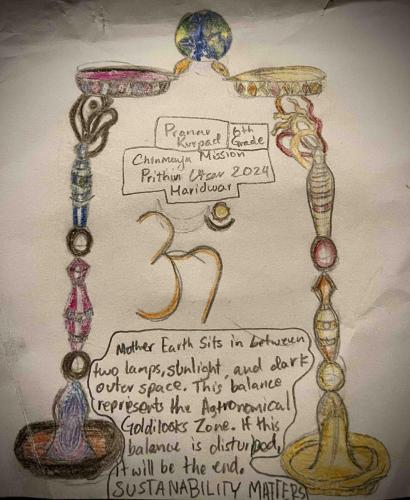 Pranav Kurpad
6th Grade
Chinmaya Mission
Prithin Utsav 2024
Haridwar
ॐ
Mother Earth Sits in between
two lamps, sunlight, and dark
outer space. This balance
represents the Astronomical
Goldilocks Zone. If this
balance is disturbed,
it will be the end.
SUSTANABILITY MATTERS